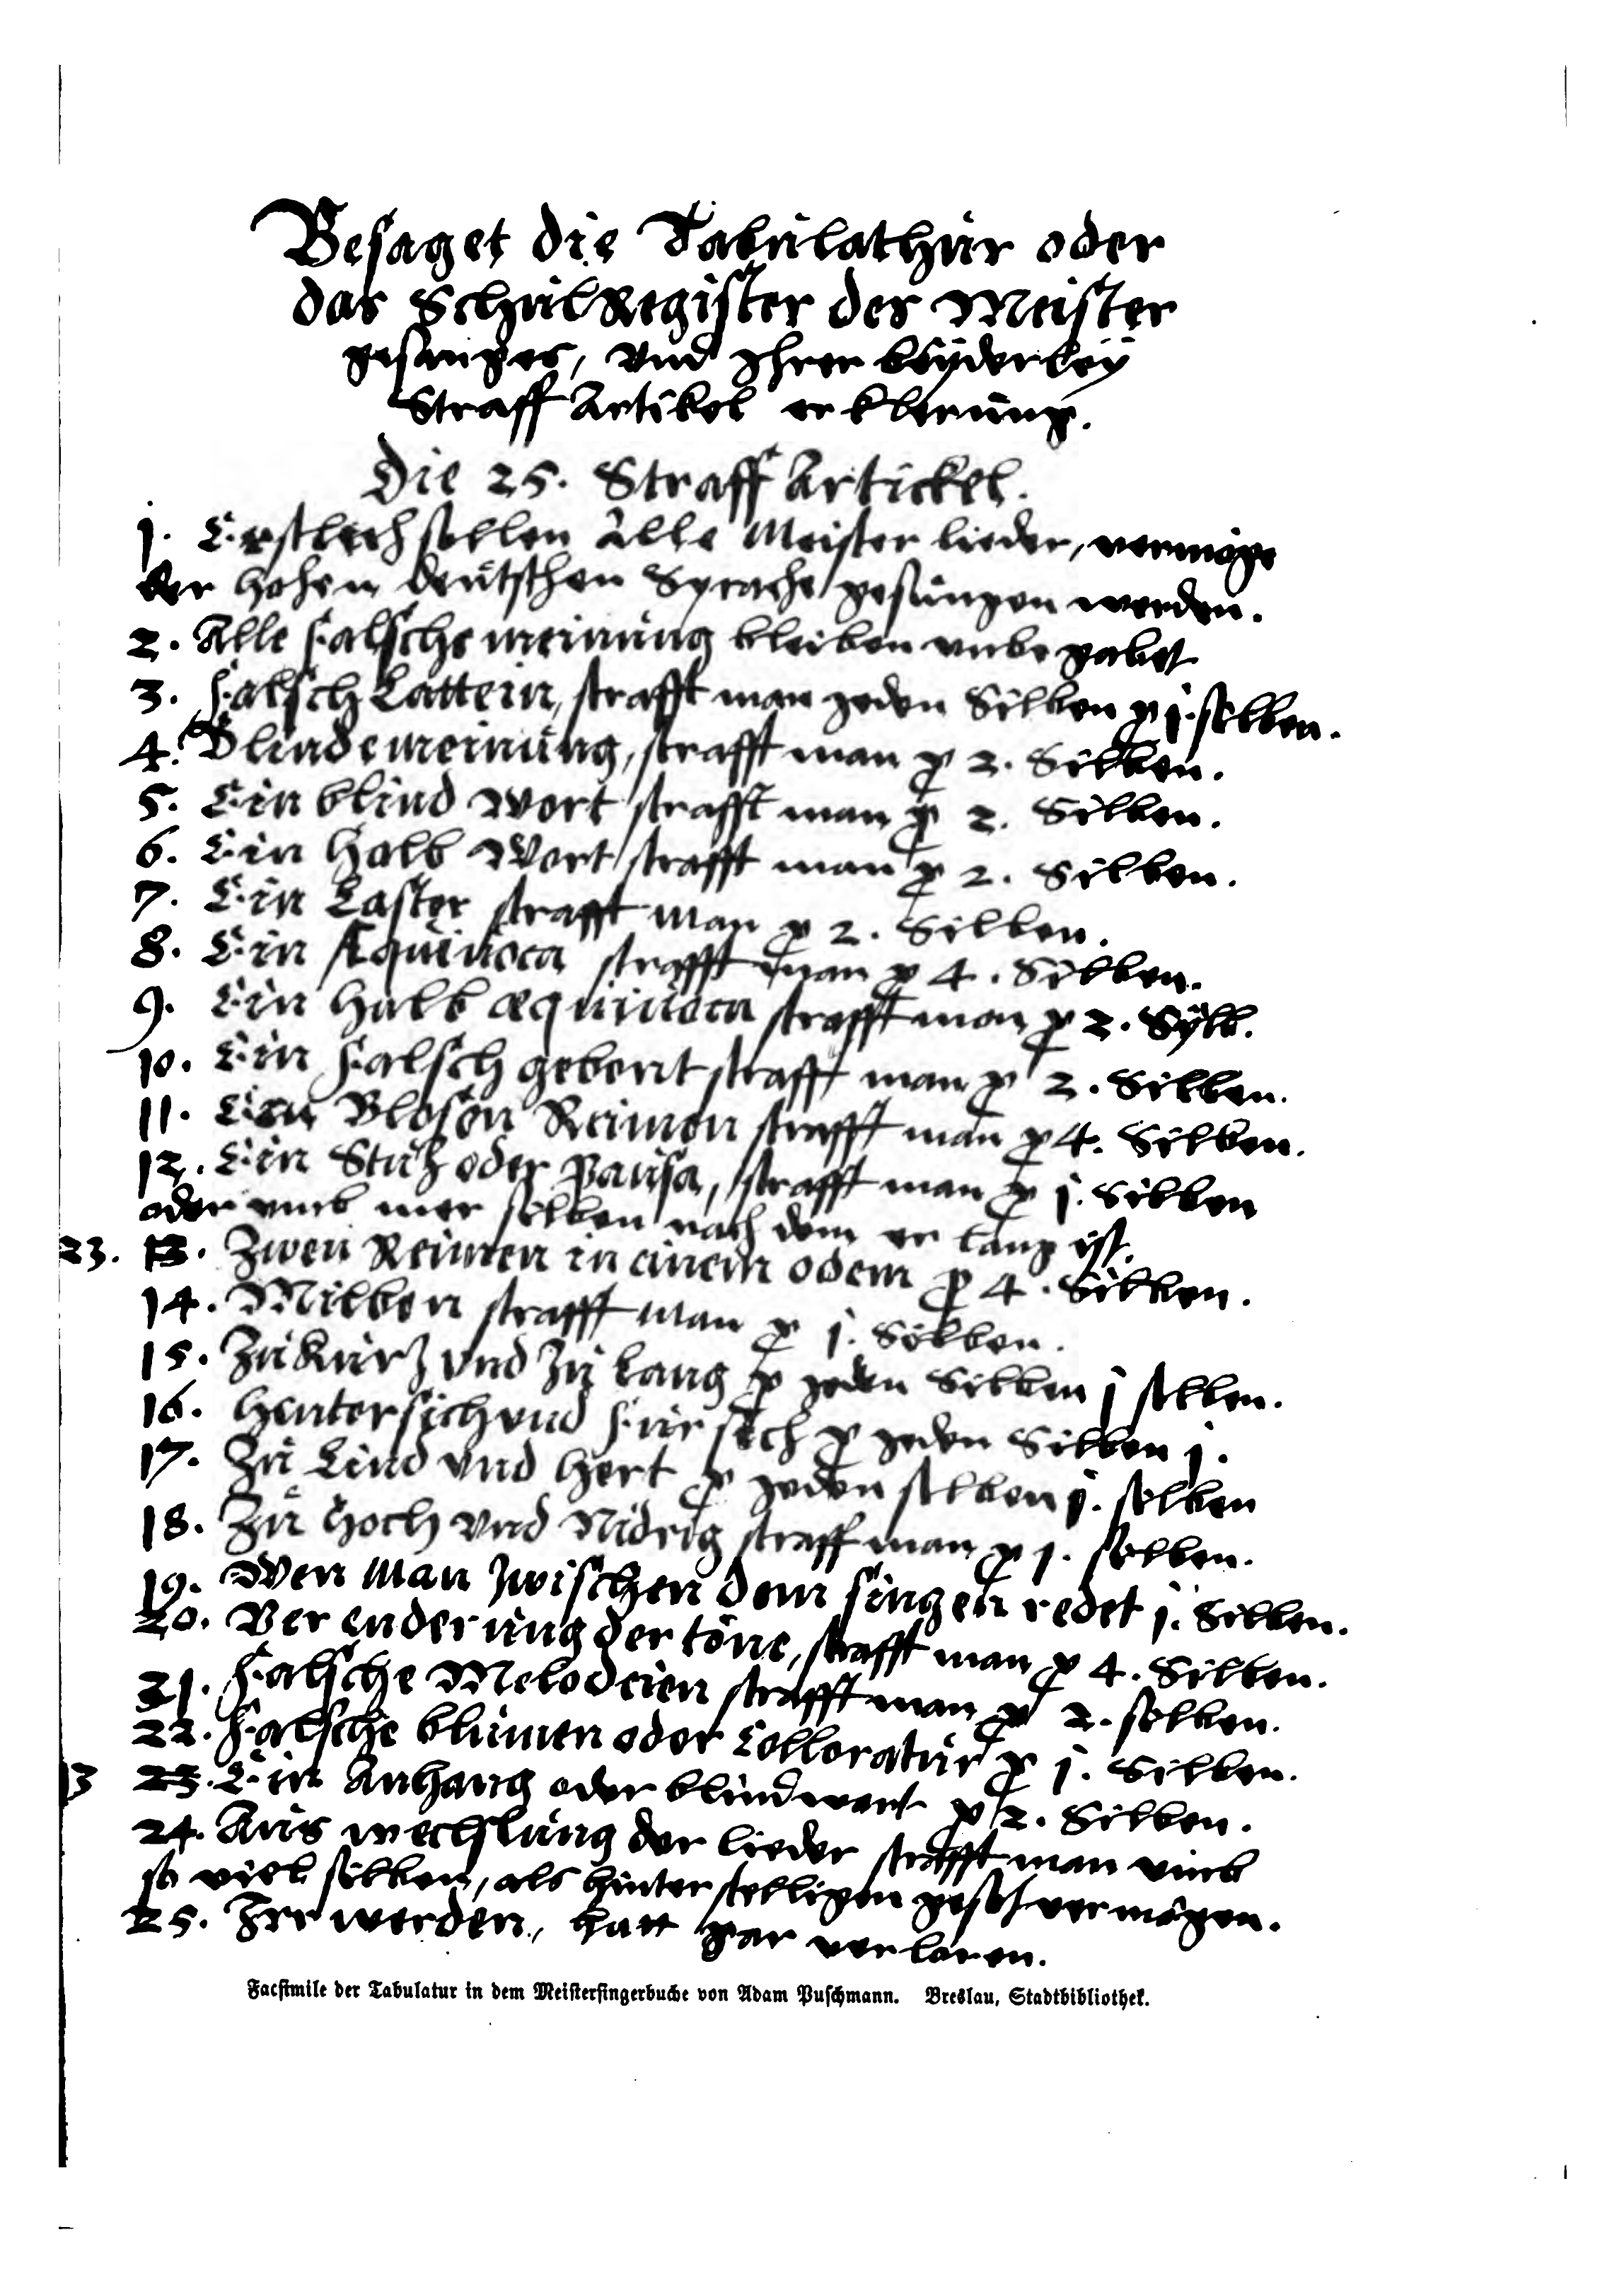 Besaget die Tabulathur oder
das SchulRegister des Meister
gesanges, vnd Ihrer beyderley
Straff Artikel erklerung.
Die 25. Straff Artickel.
1. Erstlich sollen Alle Meister lieder, vermöge
der hohen deutschen Sprache gesungen werden.
2. Alle falsche meinung bleiben vnbegabet
3. Falsch Lattein, strafft man jeden Silben p 1. silben.
4. Blinde meinung, strafft man p 2. Silben.
5. Ein blind Wort strafft man p 2. Silben.
6. Ein halb Wort strafft man p 2. Silben.
7. Ein Laster strafft man p 2. Silben.
8. Ein Aquiuoca strafft man p 4. Silben.
9. Ein halb æquiuoca strafft man p 2. Sylb.
10. Ein falsch gebent strafft man p 2. Silben.
11. Ein Blosen Reimen strafft man p 4. Silben.
12. Ein Stutz oder Pausa, strafft man p 1. Silben
oder vmb mer silben nach dem er lang ist.
23. 13. Zwen Reimen in einem odem p 4. Silben.
14. Milben strafft man p 1. Silben.
15. Zu Kurz vnd Zu Lang p jeden Silben 1 silben.
16. Hintersich vnd Fürsich p jeden Silben 1.
17. Zu Lind vnd Hert p jeden silben 1. silben
18. Zu Hoch vnd Nidrig straff man p 1. silben.
19. Wen man zwischen dem singen redet 1. Silben.
20. Verenderung der töne, strafft man p 4. Silben.
21. Falsche Melodeien strafft man p 2. silben.
22. Falsche blumen oder Colloratur p 1. Silben.
13 23. Ein Anhang oder blindwort p 2. Silben.
24. Auswechslung der lieder strafft man vmb
so viel silben, als hinterstelligen gesetz vermögen.
25. Irr werden, hatt gar verloren.
Facsimile der Tabulatur in dem Meistersingerbuche von Adam Puschmann. Breslau, Stadtbibliothek.